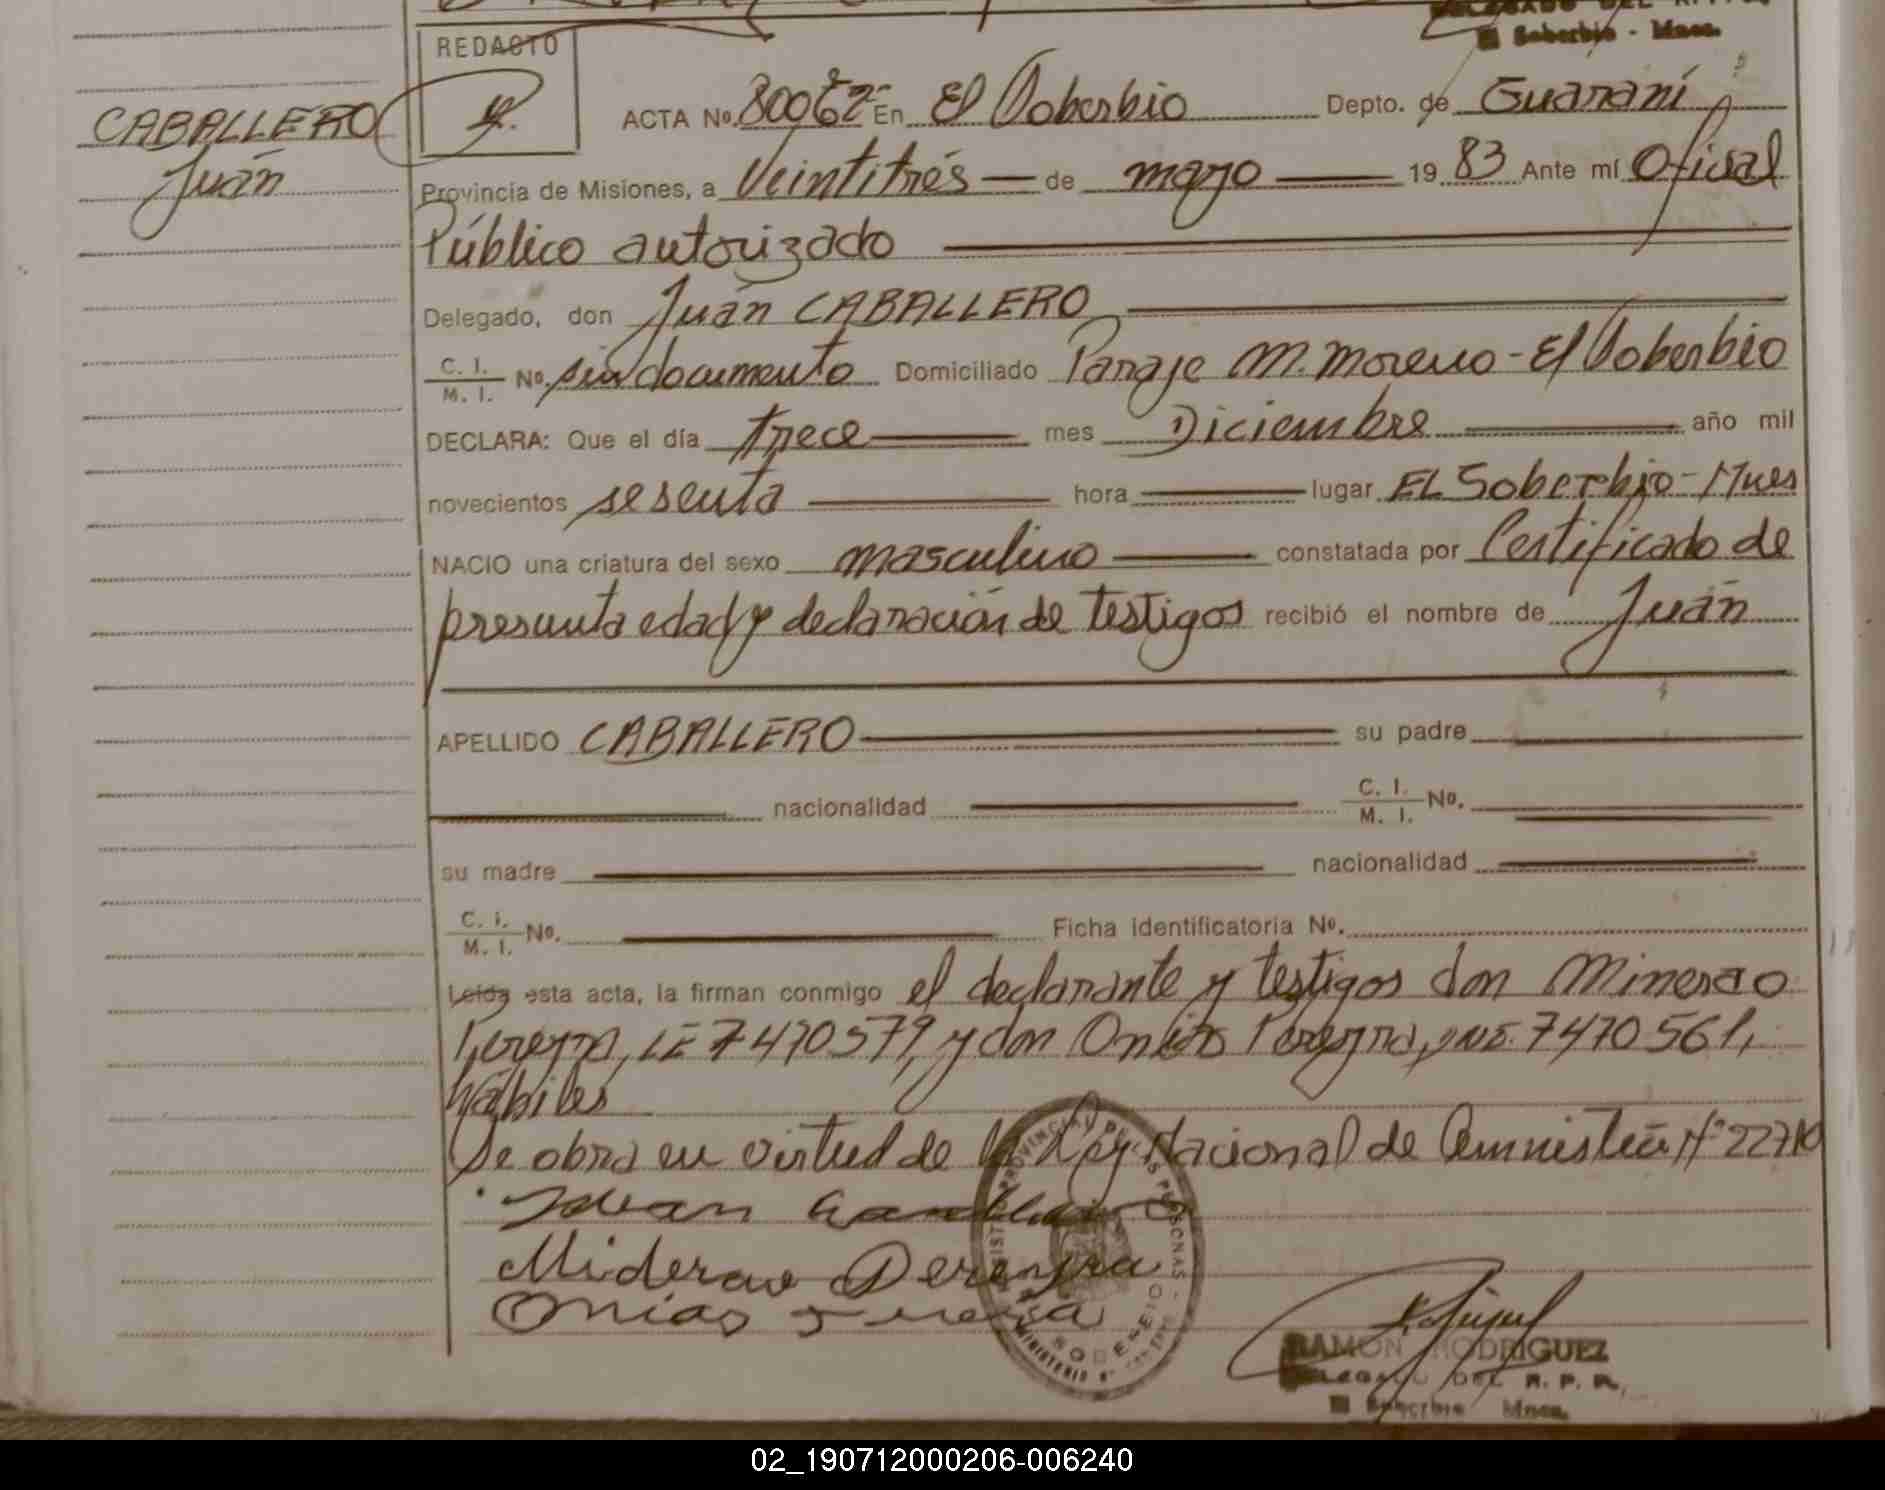 DELEGADO DEL R.P.P.
El Soberbio - Mnes.
REDACTO
CABALLERO
Juán
ACTA Nº. 80062 En El Soberbio Depto. de Guaraní
Provincia de Misiones, a Veintitrés — de mayo — 19 83 Ante mí Oficial
Público autorizado
Delegado, don Juán CABALLERO
C. I. / M. I. Nº. sin documento Domiciliado Paraje M. Moreno - El Soberbio
DECLARA: Que el día trece mes Diciembre año mil
novecientos sesenta hora — lugar EL Soberbio - Mnes
NACIO una criatura del sexo masculino constatada por Certificado de
presunta edad y declaración de testigos recibió el nombre de Juán
APELLIDO CABALLERO su padre
nacionalidad C. I. / M. I. Nº.
su madre nacionalidad
C. I. / M. I. Nº. Ficha identificatoria Nº.
Leida esta acta, la firman conmigo el declarante y testigos don Minerao
Pereyra, LE 7470579, y don Onias Pereyra, 7470561,
hábiles
Se obra en virtud de la Ley Nacional de Amnistia Nº 22710
Juan Caballero
Miderao Pereyra
Onias
REGISTRO PROVINCIAL DE LAS PERSONAS
SOBERBIO
MINISTERIO
RAMON RODRIGUEZ
DELEGADO DEL R. P. P.
El Soberbio Mnes.
02_190712000206-006240